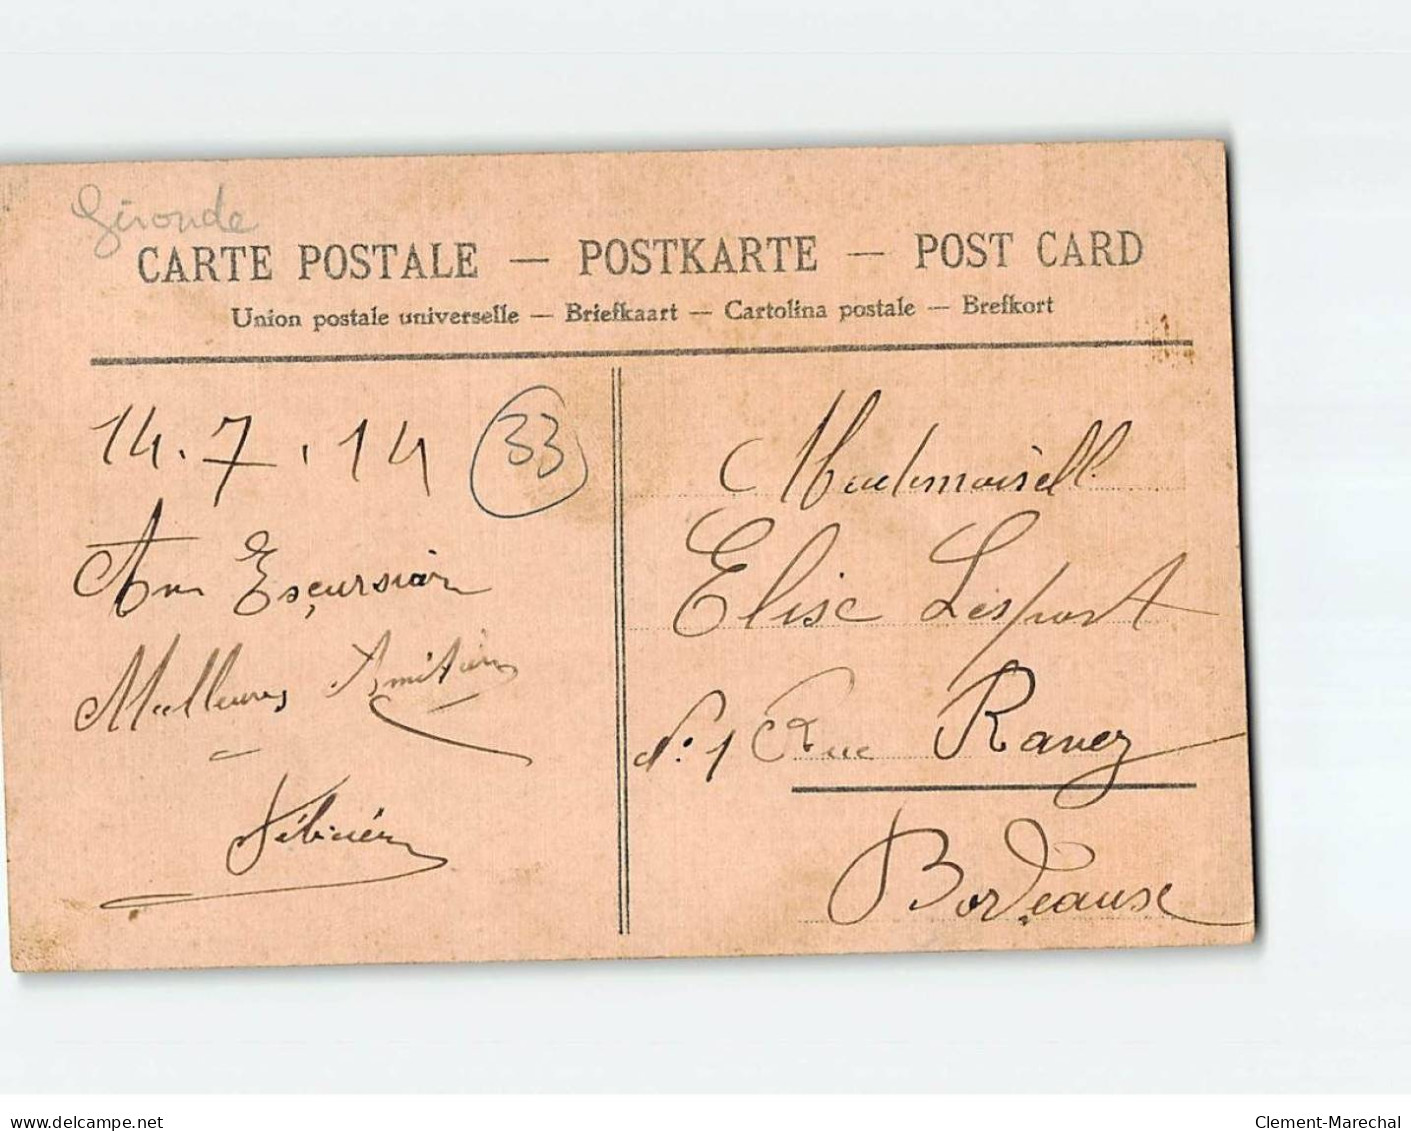 Gironde
CARTE POSTALE — POSTKARTE — POST CARD
Union postale universelle — Briefkaart — Cartolina postale — Brefkort
14.7.14
33
Escursion
Meilleures Amitiés
Mademoisell
Elise Lesport
N° 1 Rue Ravez
Bordeause
www.delcampe.net
Clement-Marechal